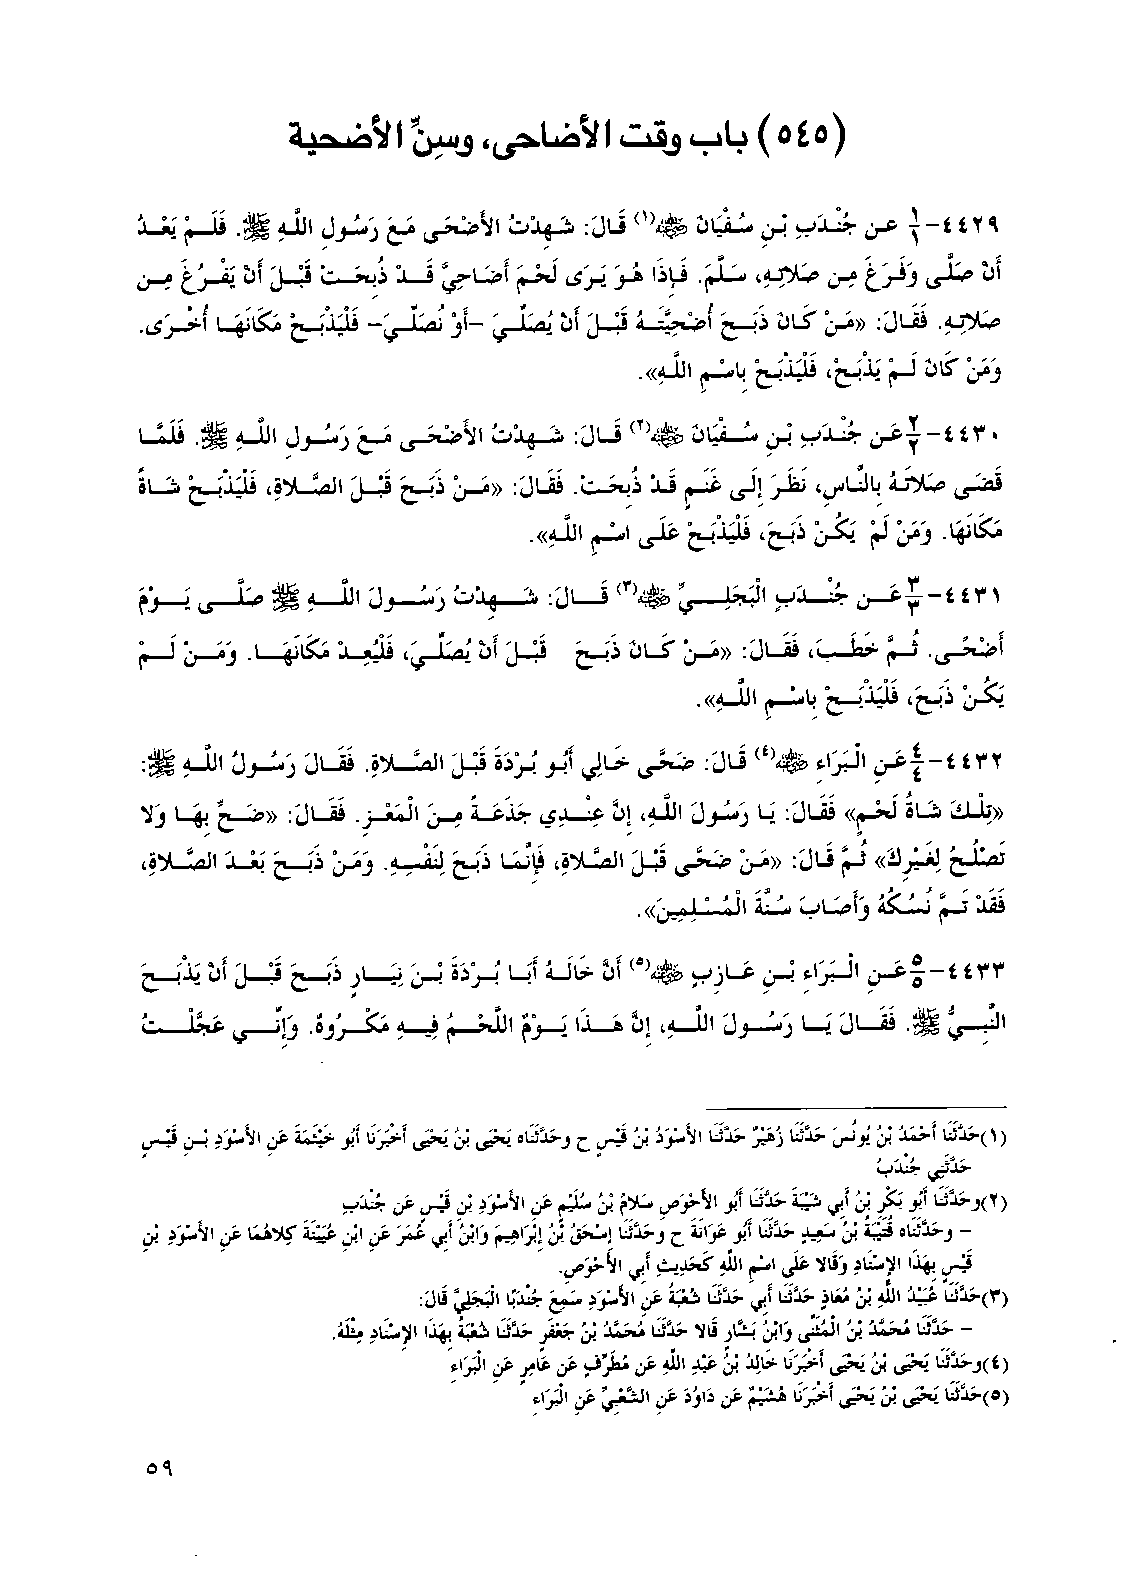 (٥٤٥) باب وقت الأضاحى، وسِنِّ الأضحية
٤٤٢٩-١/١ عن جُنْدَبِ بْنِ سُفْيَانَ ﷺ(١) قَالَ: شَهِدْتُ الأَضْحَى مَعَ رَسُولِ اللَّهِ ﷺ. فَلَمْ يَعْدُ
أَنْ صَلَّى وَفَرَغَ مِن صَلاتِهِ، سَلَّمَ. فَإِذَا هُوَ يَرَى لَحْمَ أَضَاحِيَّ قَدْ ذُبِحَتْ قَبْلَ أَنْ يَفْرُغَ مِن
صَلاتِهِ. فَقَالَ: «مَنْ كَانَ ذَبَحَ أُضْحِيَّتَهُ قَبْلَ أَنْ يُصَلِّيَ -أَوْ نُصَلِّيَ- فَلْيَذْبَحْ مَكَانَهَا أُخْرَى.
وَمَنْ كَانَ لَمْ يَذْبَحْ، فَلْيَذْبَحْ بِاسْمِ اللَّهِ».
٤٤٣٠-٢/٢ عَن جُنْدَبِ بْنِ سُفْيَانَ ﷺ(٢) قَالَ: شَهِدْتُ الأَضْحَى مَعَ رَسُولِ اللَّهِ ﷺ. فَلَمَّا
قَضَى صَلاتَهُ بِالنَّاسِ، نَظَرَ إِلَى غَنَمٍ قَدْ ذُبِحَتْ. فَقَالَ: «مَنْ ذَبَحَ قَبْلَ الصَّلاةِ، فَلْيَذْبَحْ شَاةً
مَكَانَهَا. وَمَنْ لَمْ يَكُنْ ذَبَحَ، فَلْيَذْبَحْ عَلَى اسْمِ اللَّهِ».
٤٤٣١-٣/٣ عَن جُنْدَبٍ الْبَجَلِيِّ ﷺ(٣) قَالَ: شَهِدْتُ رَسُولَ اللَّهِ ﷺ صَلَّى يَوْمَ
أَضْحًى. ثُمَّ خَطَبَ، فَقَالَ: «مَنْ كَانَ ذَبَحَ قَبْلَ أَنْ يُصَلِّيَ، فَلْيُعِدْ مَكَانَهَا. وَمَنْ لَمْ
يَكُنْ ذَبَحَ، فَلْيَذْبَحْ بِاسْمِ اللَّهِ».
٤٤٣٢-٤/٤ عَنِ الْبَرَاءِ ﷺ(٤) قَالَ: ضَحَّى خَالِي أَبُو بُرْدَةَ قَبْلَ الصَّلاةِ. فَقَالَ رَسُولُ اللَّهِ ﷺ:
«تِلْكَ شَاةُ لَحْمٍ» فَقَالَ: يَا رَسُولَ اللَّهِ، إِنَّ عِنْدِي جَذَعَةً مِنَ الْمَعْزِ. فَقَالَ: «ضَحِّ بِهَا وَلا
تَصْلُحُ لِغَيْرِكَ» ثُمَّ قَالَ: «مَنْ ضَحَّى قَبْلَ الصَّلاةِ، فَإِنَّمَا ذَبَحَ لِنَفْسِهِ. وَمَنْ ذَبَحَ بَعْدَ الصَّلاةِ،
فَقَدْ تَمَّ نُسُكُهُ وَأَصَابَ سُنَّةَ الْمُسْلِمِينَ».
٤٤٣٣-٥/٥ عَنِ الْبَرَاءِ بْنِ عَازِبٍ ﷺ(٥) أَنَّ خَالَهُ أَبَا بُرْدَةَ بْنَ نِيَارٍ ذَبَحَ قَبْلَ أَنْ يَذْبَحَ
النَّبِيُّ ﷺ. فَقَالَ يَا رَسُولَ اللَّهِ، إِنَّ هَذَا يَوْمٌ اللَّحْمُ فِيهِ مَكْرُوهٌ. وَإِنِّي عَجَّلْتُ
(١)حَدَّثَنَا أَحْمَدُ بْنُ يُونُسَ حَدَّثَنَا زُهَيْرٌ حَدَّثَنَا الأَسْوَدُ بْنُ قَيْسٍ ح وحَدَّثَنَاه يَحْيَى بْنُ يَحْيَى أَخْبَرَنَا أَبُو خَيْثَمَةَ عَنِ الأَسْوَدِ بْنِ قَيْسٍ
حَدَّثَنِي جُنْدَبُ
(٢)وحَدَّثَنَا أَبُو بَكْرِ بْنُ أَبِي شَيْبَةَ حَدَّثَنَا أَبُو الأَحْوَصِ سَلاَّمُ بْنُ سُلَيْمٍ عَنِ الأَسْوَدِ بْنِ قَيْسٍ عَن جُنْدَبِ
- وحَدَّثَنَاه قُتَيْبَةُ بْنُ سَعِيدٍ حَدَّثَنَا أَبُو عَوَانَةَ ح وحَدَّثَنَا إِسْحَقُ بْنُ إِبْرَاهِيمَ وَابْنُ أَبِي عُمَرَ عَنِ ابْنِ عُيَيْنَةَ كِلاهُمَا عَنِ الأَسْوَدِ بْنِ
قَيْسٍ بِهَذَا الإِسْنَادِ وَقَالا عَلَى اسْمِ اللَّهِ كَحَدِيثِ أَبِي الأَحْوَصِ.
(٣)حَدَّثَنَا عُبَيْدُ اللَّهِ بْنُ مُعَاذٍ حَدَّثَنَا أَبِي حَدَّثَنَا شُعْبَةُ عَنِ الأَسْوَدِ سَمِعَ جُنْدَبًا الْبَجَلِيَّ قَالَ:
- حَدَّثَنَا مُحَمَّدُ بْنُ الْمُثَنَّى وَابْنُ بَشَّارٍ قَالا حَدَّثَنَا مُحَمَّدُ بْنُ جَعْفَرٍ حَدَّثَنَا شُعْبَةُ بِهَذَا الإِسْنَادِ مِثْلَهُ.
(٤)وحَدَّثَنَا يَحْيَى بْنُ يَحْيَى أَخْبَرَنَا خَالِدُ بْنُ عَبْدِ اللَّهِ عَن مُطَرِّفٍ عَن عَامِرٍ عَنِ الْبَرَاءِ
(٥)حَدَّثَنَا يَحْيَى بْنُ يَحْيَى أَخْبَرَنَا هُشَيْمٌ عَن دَاوُدَ عَنِ الشَّعْبِيِّ عَنِ الْبَرَاءِ
٥٩